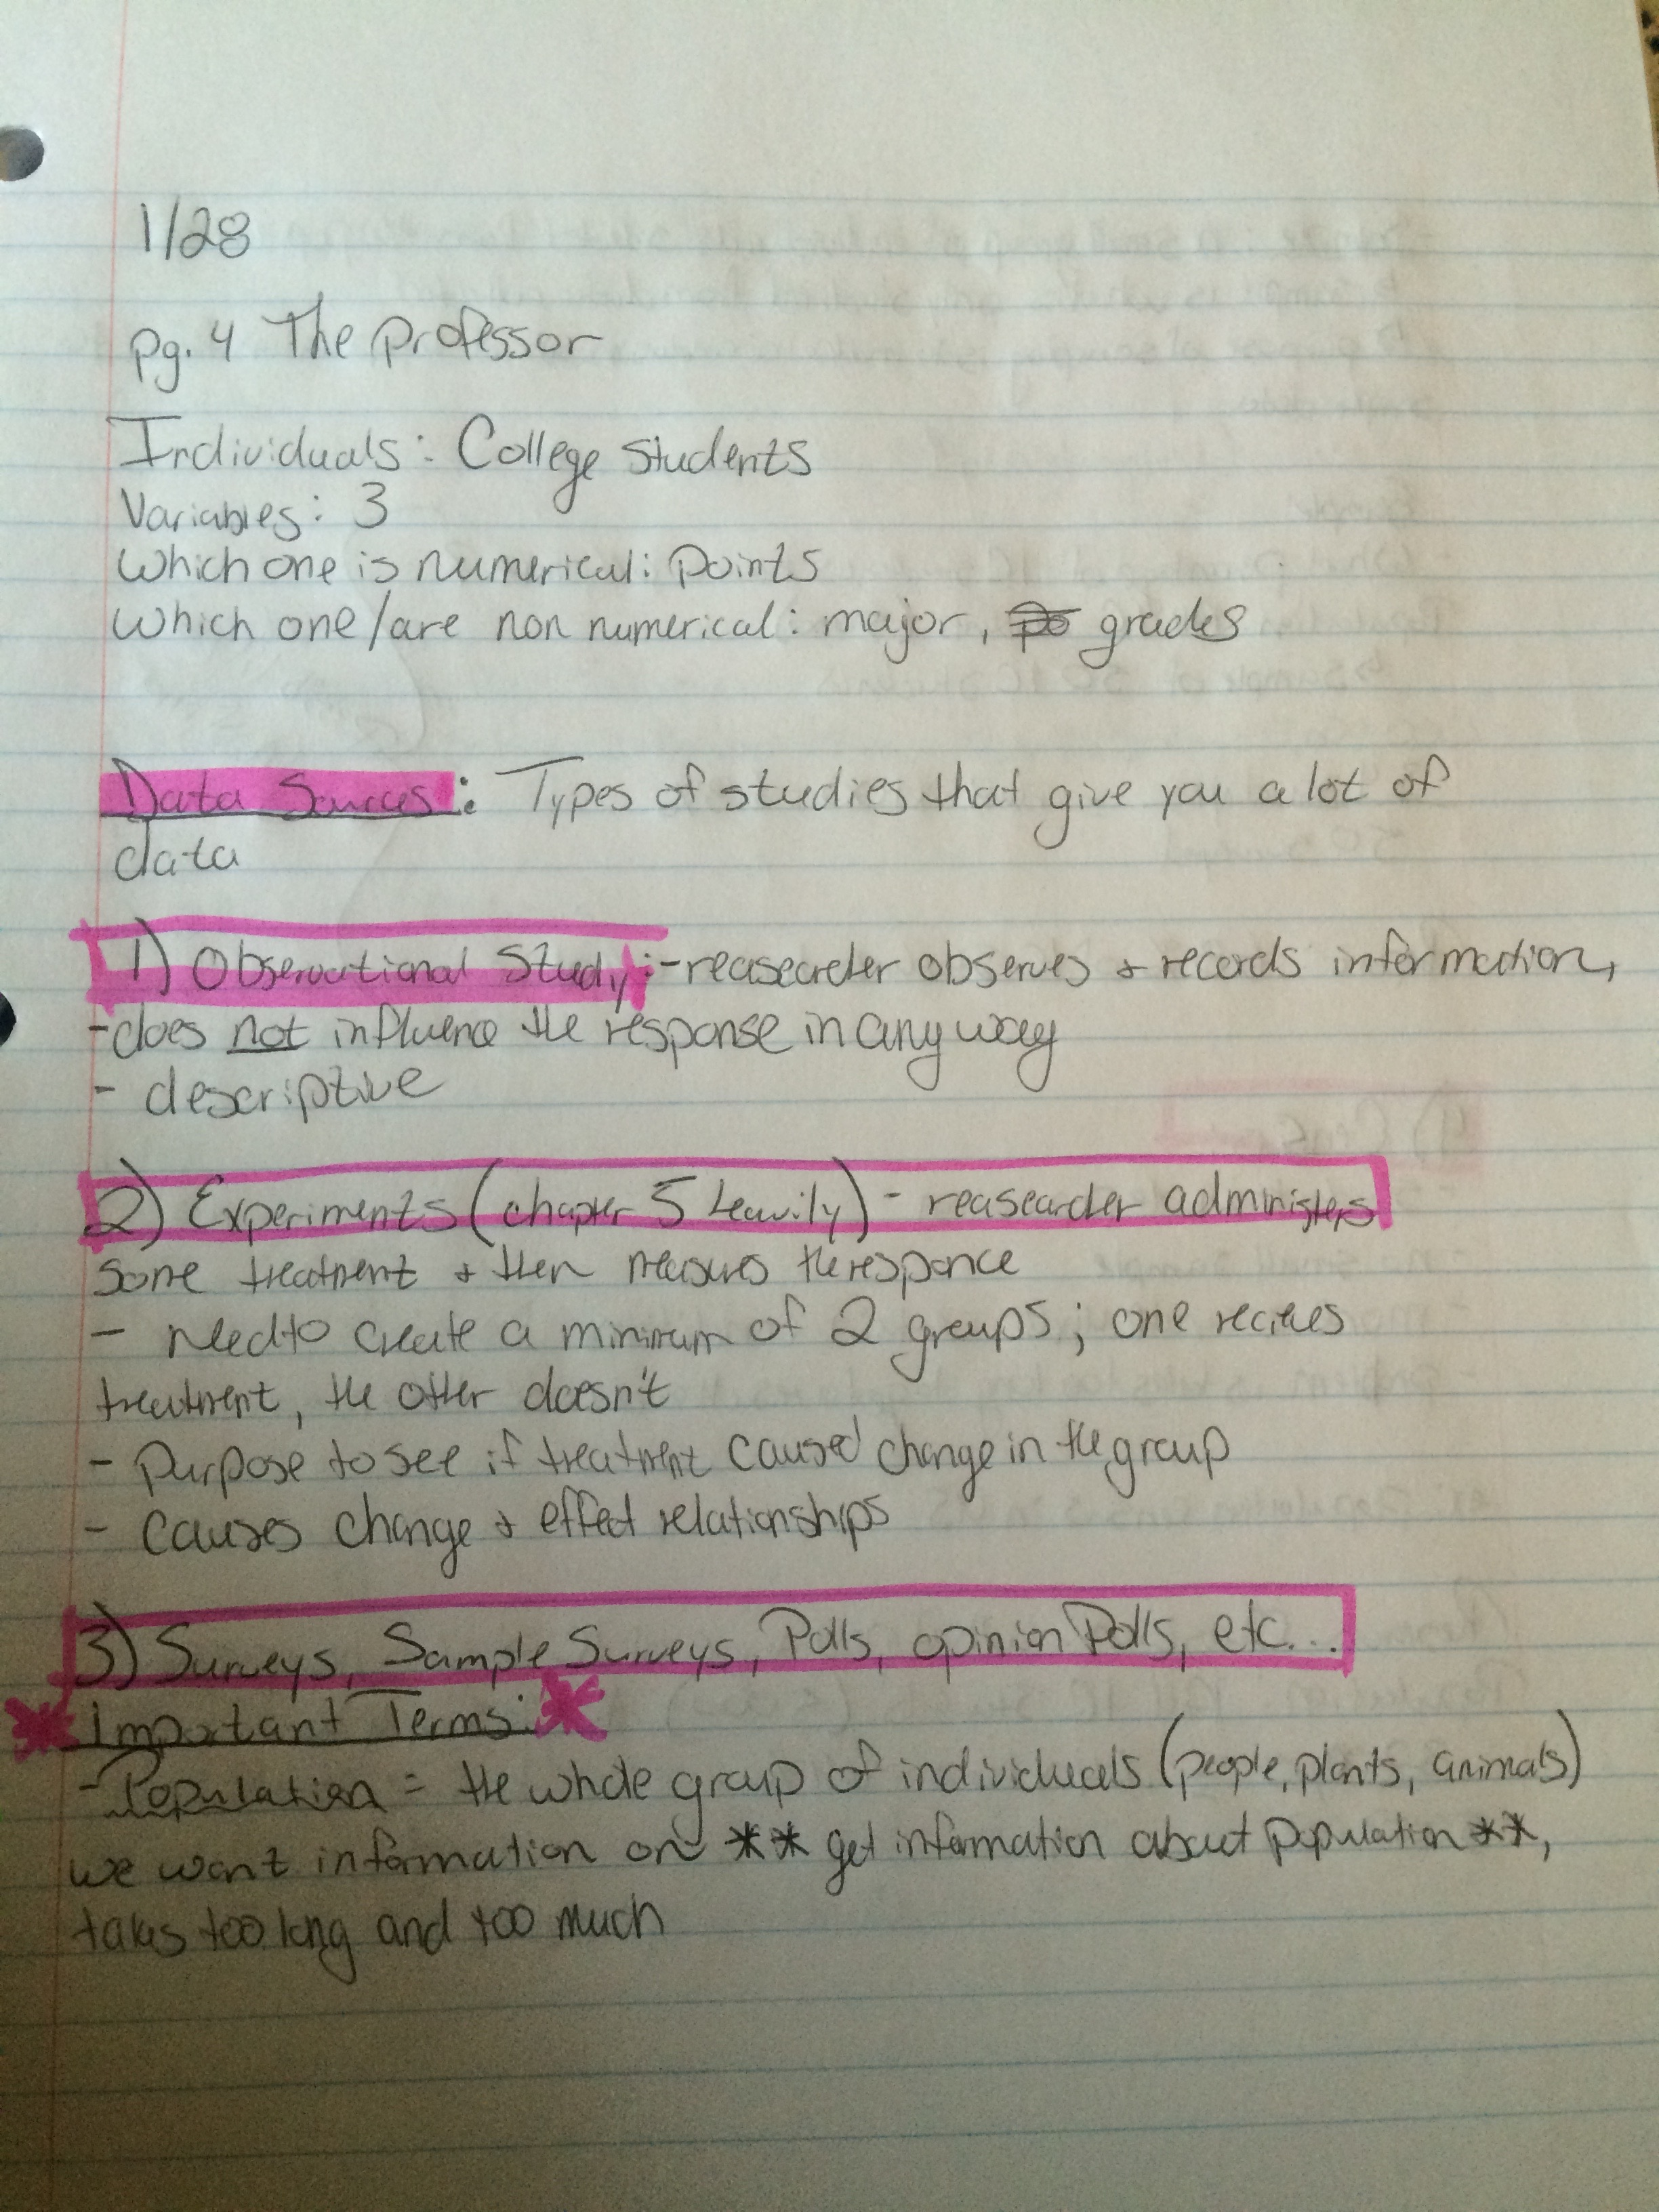 1/28
pg. 4 The professor
Individuals: College Students
Variables: 3
Which one is numerical: points
Which one/are non numerical: major, grades
Data Sources: Types of studies that give you a lot of
data
1) Observational Study: - reasearcher observes & records information,
- does not influence the response in any way
- descriptive
2) Experiments (chapter 5 ) - reasearcher administers
some treatment & then measures the responce
- need to create a minimum of 2 groups; one recieves
treatment, the other doesn't
- Purpose to see if treatment caused change in the group
- causes change & effect relationships
3) Surveys, Sample Surveys, Polls, opinion Polls, etc...
Important Terms:
- Population = the whole group of individuals (people, plants, animals)
we want information on ** get information about population **,
takes too long and too much